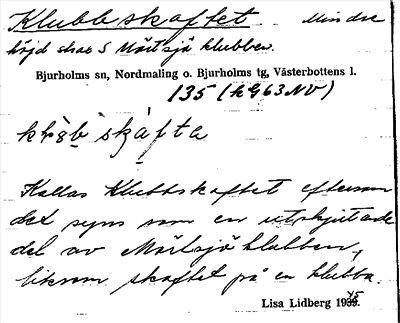 Klubbskaftet. Mindre
höjd strax S Mörtsjöklubben.
Bjurholms sn, Nordmaling o. Bjurholms tg, Västerbottens l.
135 (kG63NV)
skafta
Kallas Klubbskaftet eftersom
det syns som en utskjutande
del av Mörtsjöklubben,
liksom skaftet på en klubba.
Lisa Lidberg 1945